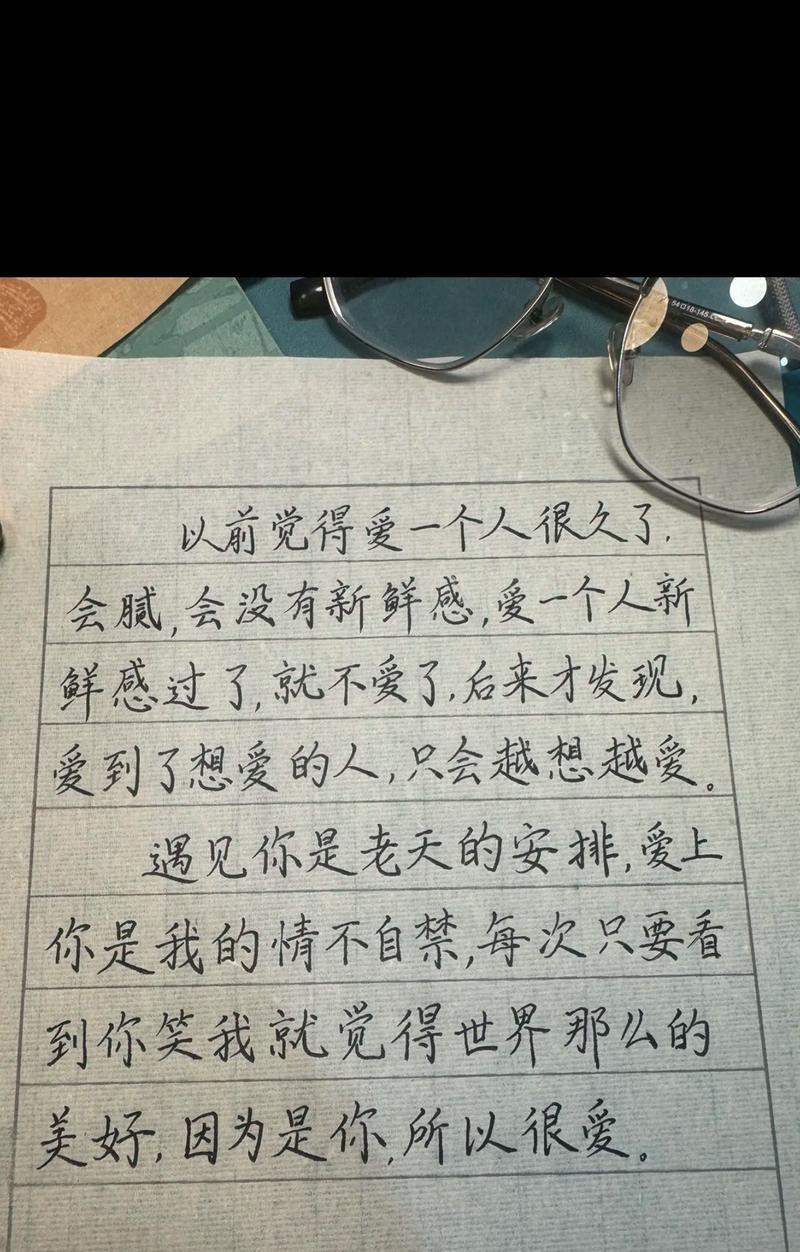 54□18-145
以前觉得爱一个人很久了,
会腻,会没有新鲜感,爱一个人新
鲜感过了,就不爱了,后来才发现,
爱到了想爱的人,只会越想越爱。
遇见你是老天的安排,爱上
你是我的情不自禁,每次只要看
到你笑我就觉得世界那么的
美好,因为是你,所以很爱。